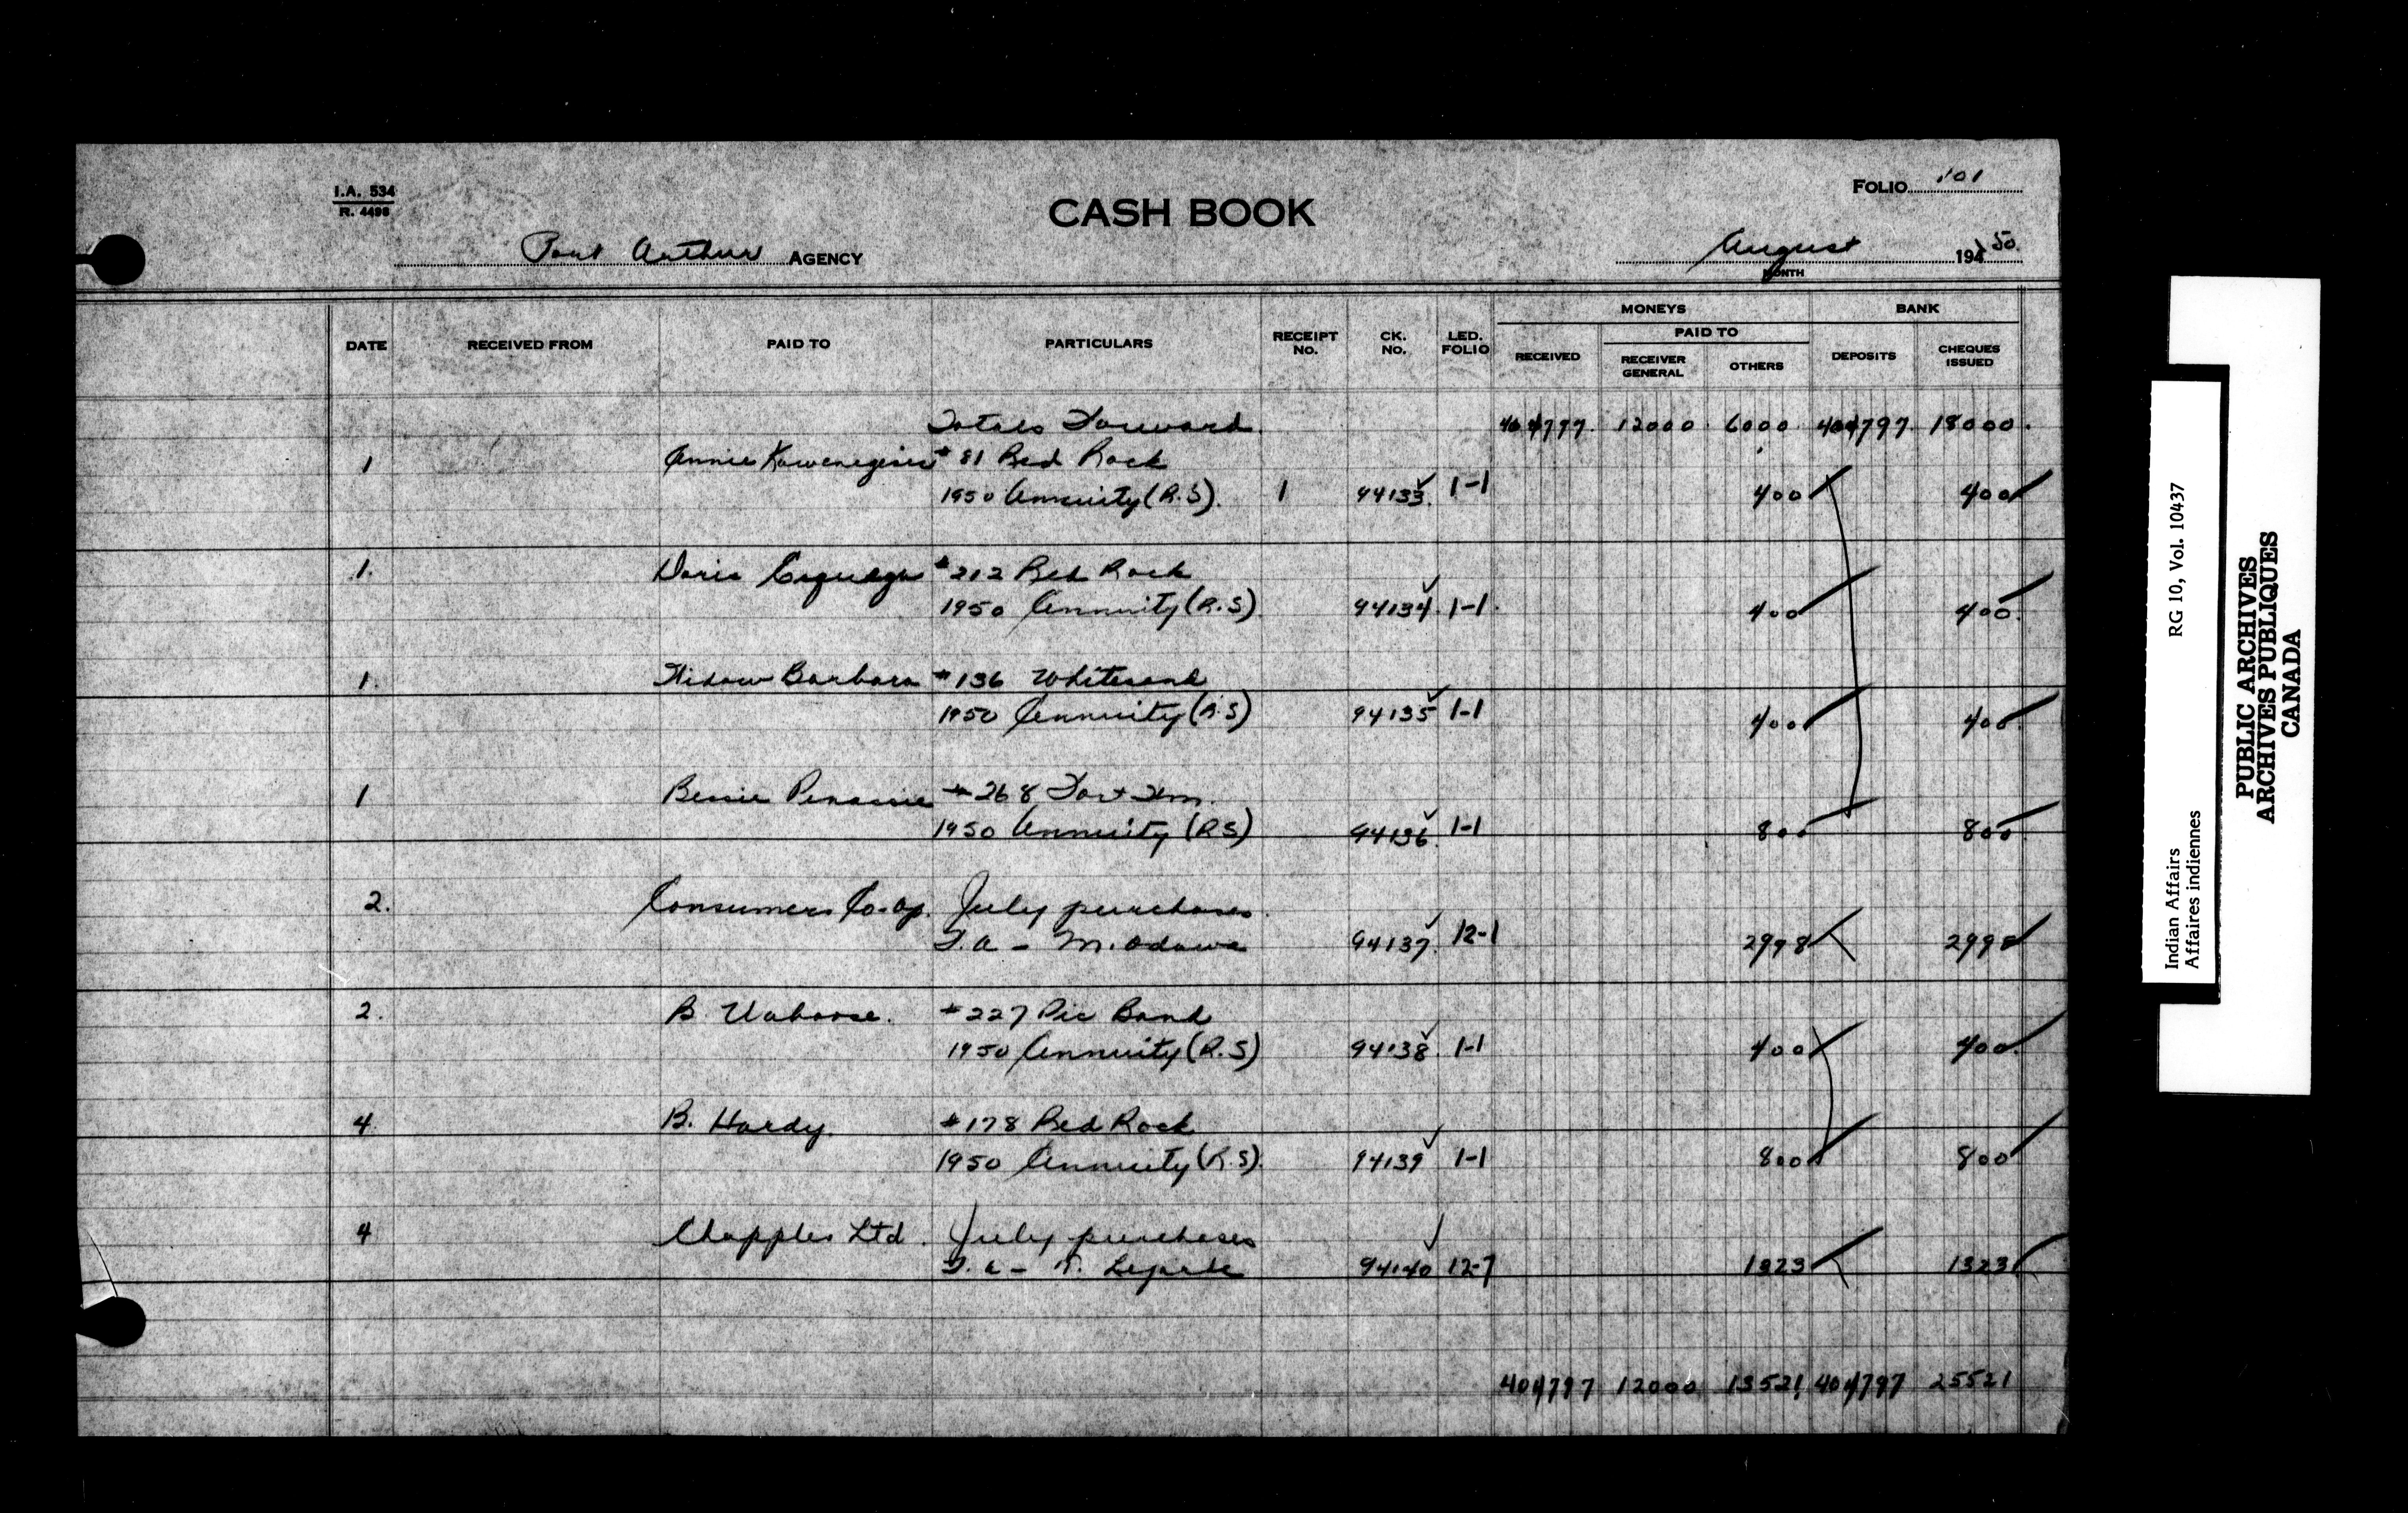 I.A. 534
R. 4498
CASH BOOK
FOLIO 101
Port Arthur AGENCY
August 1950
MONTH
DATE RECEIVED FROM PAID TO PARTICULARS RECEIPT No. CK. No. LED. FOLIO MONEYS BANK
RECEIVED PAID TO DEPOSITS CHEQUES ISSUED
RECEIVER GENERAL OTHERS
Totals Forward 404797 12000 6000 404797 18000
1 Annie #81 Red Rock
1950 Annuity (R.S). 1 94133 1-1 400 400
1. Doris #212 Red Rock
1950 Annuity (R.S) 94134 1-1 400 400
1. Widow Barbara #136 Whitesand
1950 Annuity (R.S) 94135 1-1 400 400
1 Bessie #268 Fort Wm.
1950 Annuity (RS) 94136 1-1 800 800
2. Consumers Co-op. July purchases
F.A - M. Odawa 94137 12-1 2998 2998
2. B. #227 Pic Band
1950 Annuity (R.S) 94138 1-1 400 400
4 B. Hardy #178 Red Rock
1950 Annuity (R.S). 94139 1-1 800 800
4 Chapples Ltd. July purchases
94140 12-7 1323 1323
404797 12000 13521 404797 25521
Indian Affairs RG 10, Vol. 10437
Affaires indiennes
PUBLIC ARCHIVES
ARCHIVES PUBLIQUES
CANADA